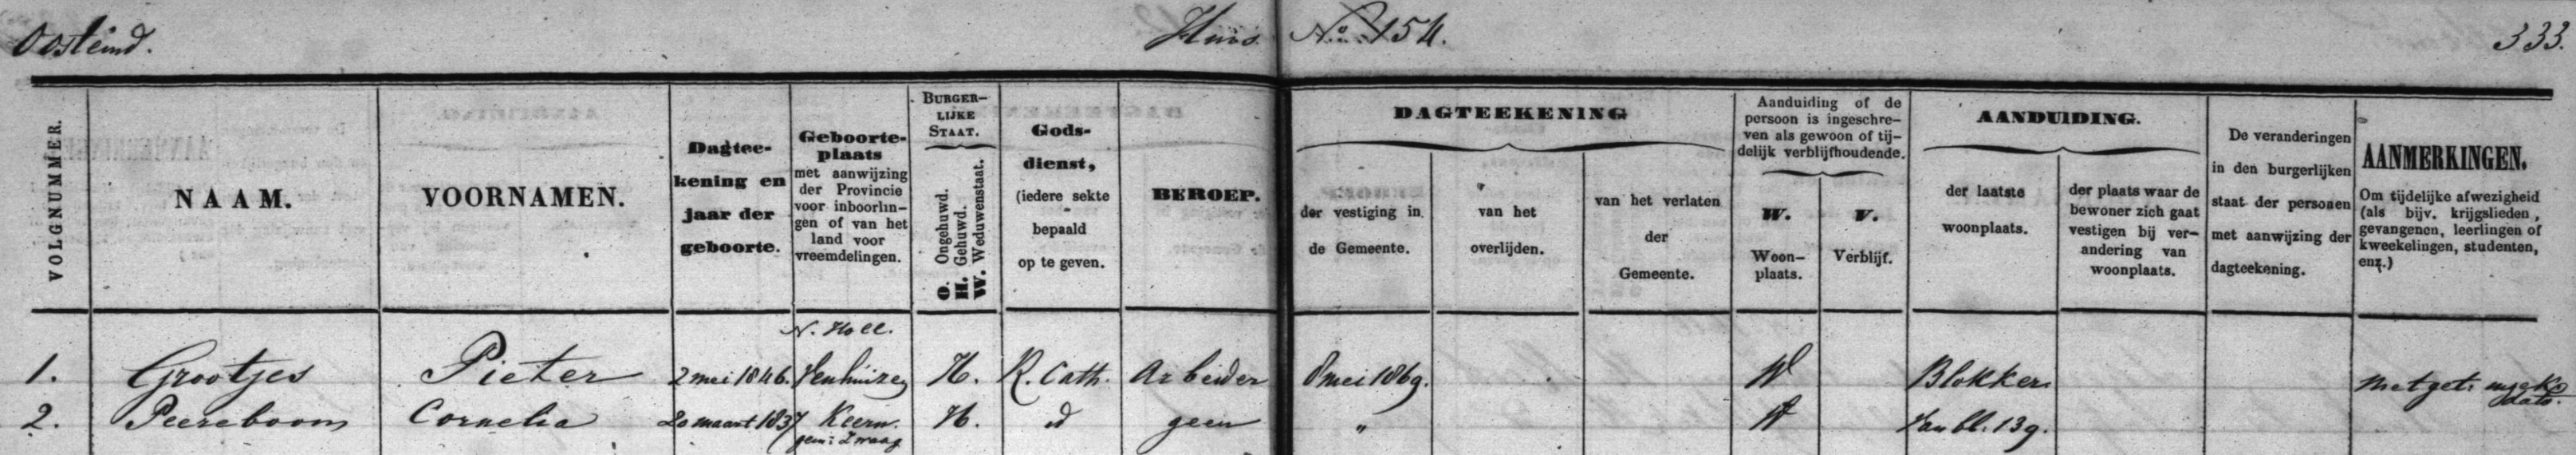 Oosteind. Huis No. 154. 333.
VOLGNUMMER.
NAAM.
VOORNAMEN.
Dagtee-
kening en
jaar der
geboorte.
Geboorte-
plaats
met aanwijzing
der Provincie
voor inboorlin-
gen of van het
land voor
vreemdelingen.
BURGER-
LIJKE
STAAT.
O. Ongehuwd.
H. Gehuwd.
W. Weduwenstaat.
Gods-
dienst,
(iedere sekte
bepaald
op te geven.
BEROEP.
DAGTEEKENING
der vestiging in
de Gemeente.
van het
overlijden.
van het verlaten
der
Gemeente.
Aanduiding of de
persoon is ingeschre-
ven als gewoon of tij-
delijk verblijfhoudende.
W.
Woon-
plaats.
V.
Verblijf.
AANDUIDING.
der laatste
woonplaats.
der plaats waar de
bewoner zich gaat
vestigen bij ver-
andering van
woonplaats.
De veranderingen
in den burgerlijken
staat der personen
met aanwijzing der
dagteekening.
AANMERKINGEN.
Om tijdelijke afwezigheid
(als bijv. krijgslieden,
gevangenen, leerlingen of
kweekelingen, studenten,
enz.)
N. Holl.
1. Grootjes Pieter 2 mei 1846. Venhuizen H. R. Cath. Arbeider 8 mei 1869. W Blokker met get:
2. Peereboom Cornelia 20 maart 1837 Keern. H. id geen " W Van bl. 139.
gem: Zwaag